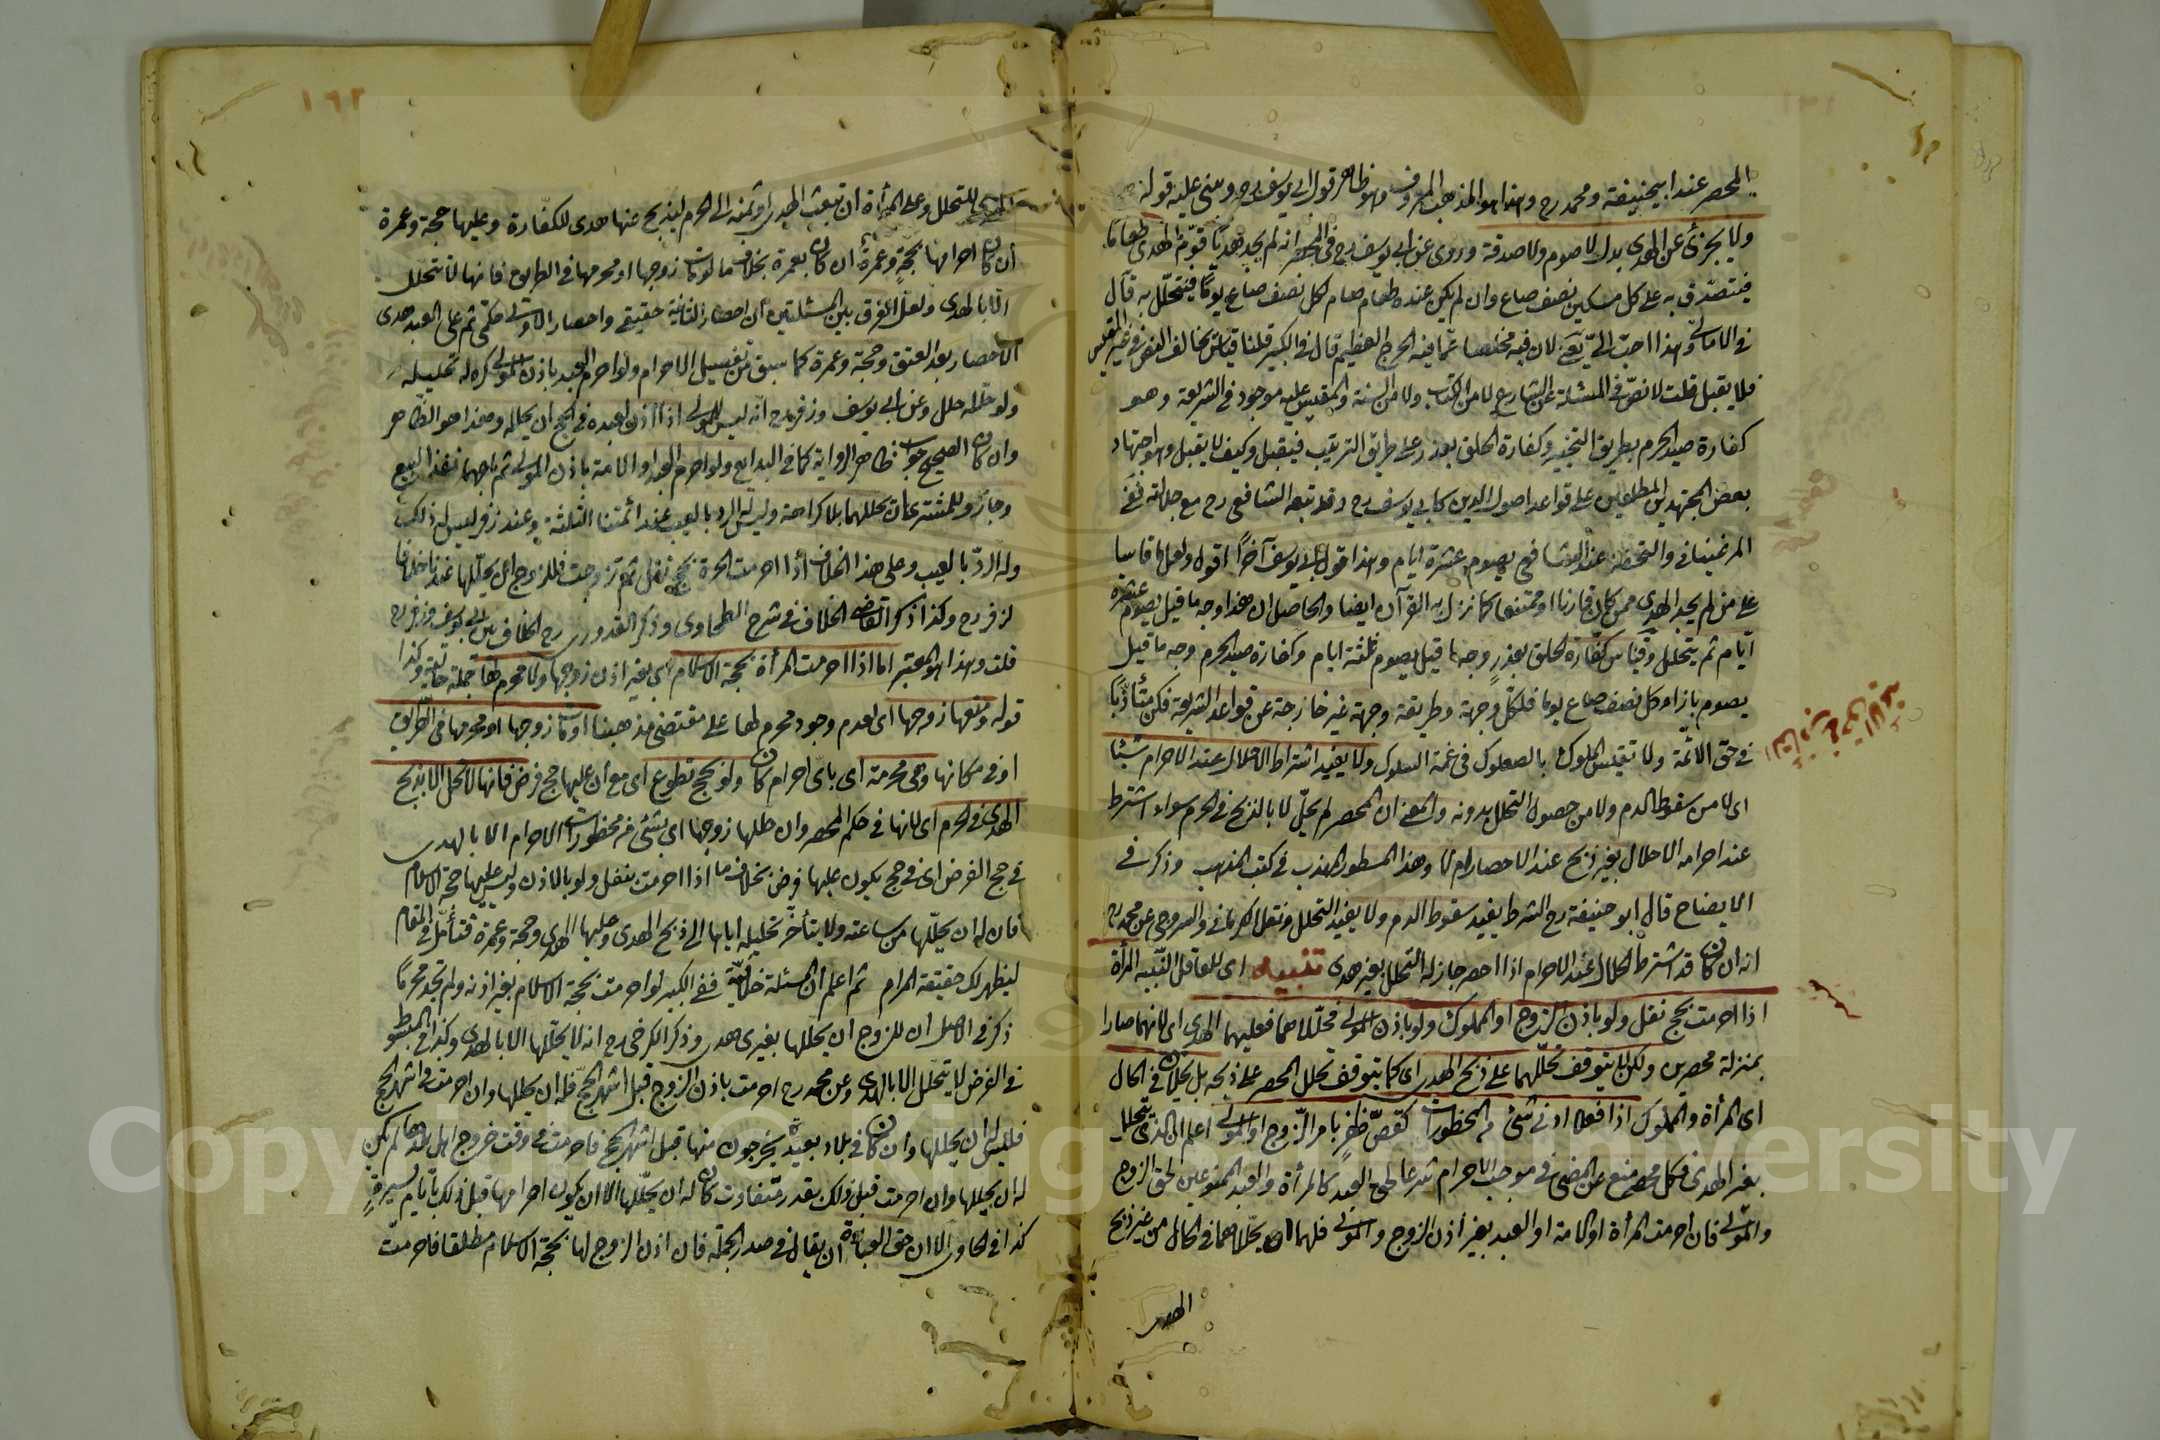 المحصر عند ابيحنيفة ومحمد رح وهذا هو المذهب المعروف وهو ظاهر قول ابي يوسف رح ويبنى عليه قوله
ولا يجزئ عن الهدى بدل لا صوم ولا صدقة وروى عن ابي يوسف رح في المحصر انه لم يجد هديا قوم الهدى طعاما
فيتصدق به على كل مسكين نصف صاع وان لم يكن عنده طعام صام لكل نصف صاع يوما فيتحلل به قال
في الامالى وهذا احب الى يعنى لان فيه مخلصا عما فيه الحرج العظيم قال في الكبير قلنا قياس يخالف النص في غير المقيس
فلا يقبل قلت لا نص في المسئلة عن الشارع لا من الكتاب ولا من السنة والمقيس عليه موجود في الشريعة وهو
كفارة صيد الحرم بطريق التخيير وكفارة الحلق بعذر على طريق الترتيب فيقبل وكيف لا يقبل وهو اجتهاد
بعض المجتهدين المطلعين على قواعد اصول الدين كابي يوسف رح وقد تبعه الشافعي رح مع جلالته ففى
المرغينانى والتحفة عند الشافعي يصوم عشرة ايام وهذا قول ابي يوسف آخرا اقول ولعلهما قاسا
على من لم يجد الهدى ممن كان قارنا او متمتعا كما نزل به القرآن ايضا والحاصل ان هذا وجه ما قيل يصوم عشرة
ايام ثم يتحلل وقياس كفارة الحلق بعذر وجه ما قيل يصوم ثلثة ايام وكفارة صيد الحرم وجه ما قيل
يصوم بازاء كل نصف صاع يوما فلكل وجهة وطريقة وجهته غير خارجة عن قواعد الشريعة فكن متأدبا
في حق الائمة ولا تقيس الملوك بالصعلوك في السلوك ولا يفيد اشتراط الاحلال عند الاحرام شيئا
اى لا من سقوط الدم ولا من حصول التحلل بدونه والمعنى ان المحصر لم يحل الا بالذبح في الحرم سواء اشترط
عند احرامه الاحلال بغير ذبح عند الاحصار ام لا وهذا المسطور المهذب في كتب المذهب وذكر في
الايضاح قال ابو حنيفة رح الشرط يفيد سقوط الدم ولا يفيد التحلل ونقل الكرمانى والسروجى عن محمد رح
انه ان كان قد اشترط الاحلال عند الاحرام اذا احصر جاز له التحلل بغير هدى تنبيه اى للغافل النبيه المرأة
اذا احرمت بحج نفل ولو باذن الزوج او المملوك ولو باذن المولى فحللاهما فعليهما الهدى اى لانهما صارا
بمنزلة محصرين ولكن لا يتوقف تحللهما على ذبح الهدى اى كما يتوقف تحلل المحصر على ذبحه بل يحلان في الحال
اى المرأة والمملوك اذا فعلا ادنى شئ من المحظورات كقص ظفر بامر الزوج او المولى اعلم ان الذى يتحلل
بغير الهدى فكل محصر منع عن المضى في موجب الاحرام شرعا لحق العبد كالمرأة والعبد الممنوعين لحق الزوج
والمولى فان احرمت المرأة او الامة او العبد بغير اذن الزوج والمولى فلهما ان يحللاهما في الحال من غير ذبح
الهدى
الهدى للتحلل وعلى المرأة ان تبعث الهدى او ثمنه الى الحرم ليذبح عنها هدى للكفارة وعليها حجة وعمرة
ان كان احرامها بحجة وعمرة ان كان بعمرة بخلاف ما لو مات زوجها او محرمها في الطريق فانها لا تتحلل
الا بالهدى ولعل الفرق بين المسئلتين ان احصار الثانية حقيقى واحصار الاولى حكمى ثم على العبد هدى
الاحصار بعد العتق وحجة وعمرة كما سبق من تفصيل الاحرام ولو احرم العبد باذن المولى كره له تحليله
ولو حلله حل وعن ابي يوسف وزفر رح انه ليس للمولى اذا اذن لعبده في الحج ان يحلله وهذا هو الظاهر
وان كان الصحيح جواب ظاهر الرواية كما في البدايع ولو احرم العبد او الامة باذن المولى ثم باعهما نفذ البيع
وجاز وللمشترى ان يحللهما بلا كراهة وليس له الرد بالعيب عند ائمتنا الثلثة وعند زفر ليس له ذلك
وله الرد بالعيب وعلى هذا الخلاف اذا احرمت الحرة بحج نفل ثم تزوجت فللزوج ان يحللها عندنا خلافا
لزفر رح وكذا ذكر القاضى الخلاف في شرح الطحاوى وذكر القدورى رح الخلاف بين ابي يوسف وزفر رح
قلت وهذا هو المعتبر اما اذا احرمت المرأة بحجة الاسلام اى بغير اذن زوجها ولا محرم لها جملة حالية وكذا
قوله ومنعها زوجها اى لعدم وجود محرم لها على مقتضى مذهبنا او مات زوجها او محرمها في الطريق
او في مكانها وهى محرمة اى باى احرام كان ولو بحج تطوع اى مع ان عليها حج فرض فانها لا تحل الا بذبح
الهدى في الحرم اى لانها في حكم المحصر وان حللها زوجها اى بشئ من محظورات الاحرام الا بالهدى
في حج الفرض اى في حج يكون عليها فرض بخلاف ما اذا احرمت بنفل ولو بالاذن وليس عليها حجة الاسلام
فان له ان يحللها من ساعته ولا يتأخر تحليله اياها الى ذبح الهدى وعليها الهدى وحجة وعمرة فتأمل في المقام
ليظهر لك حقيقة المرام ثم اعلم ان المسئلة خلافية ففى الكبير لو احرمت بحجة الاسلام بغير اذنه ولم تجد محرما
ذكر في الاصل ان للزوج ان يحللها بغير هدى وذكر الكرخى رح انه لا يحللها الا بالهدى وكذا في المبسوط
في الفرض لا يتحلل الا بالهدى وعن محمد رح احرمت باذن الزوج قبل اشهر الحج فله ان يحللها وان احرمت في اشهر الحج
فليس له ان يحللها وان كان في بلاد بعيدة يخرجون منها قبل اشهر الحج فاحرمت في وقت خروج اهل بلدها لم يكن
له ان يحللها وان احرمت قبل ذلك بقدر متفاوت كان له ان يحللها الا ان يكون احرامها قبل ذلك بايام يسيرة
كذا في الحاوى الا ان حق العبارة ان يقال في صدر الجملة فان اذن الزوج لها بحجة الاسلام مطلقا فاحرمت
Copyright © King Saud University